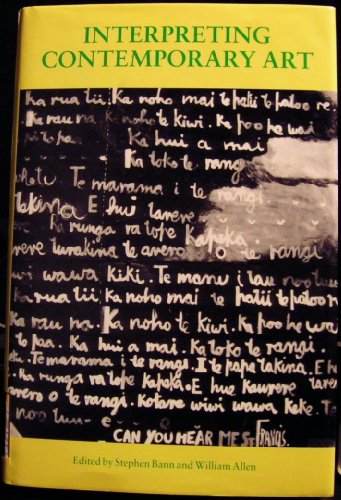 INTERPRETING
CONTEMPORARY ART
Ka rua tii. Ka noho mai te patii te patoo re.
Ka rau na. Ka noho te kiwi. Ka poo he wai
Ka hui a mai
Ka toko te rangi
Te marama i te rangi
tekina E hui tarere
Ka runga ra tope kapeka
rere turakina te arero o te rangi
wiwi wawa kiki. Te manu i tau noo
Ka rua tii Ka noho mai te patii te patoo
Ka rau na. Ka noho te kiwi. Ka poo he wa
to paa. Ka hui a mai. Ka toko te rangi.
Te marama i te rangi. I te pape takina. E
Ka runga ra tope kapeka. E hue kaurere tarere
arero o te rangi. Kotare wiwi wawa keke. Te
noo
CAN YOU HEAR ME ST FRANCIS.
Edited by Stephen Bann and William Allen